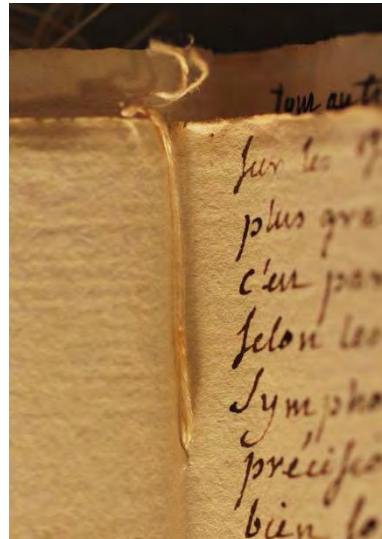 tour au t
Sur les
plus gra
c'en par
Selon les
Sympho
précisio
bien